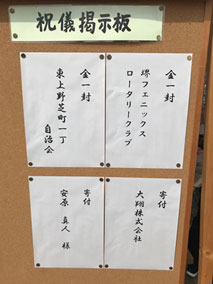 祝儀掲示板
金一封
堺フェニックス
ロータリークラブ
金一封
東上野芝町一丁
自治会
寄付
大翔株式会社
寄付
安原 真人 様